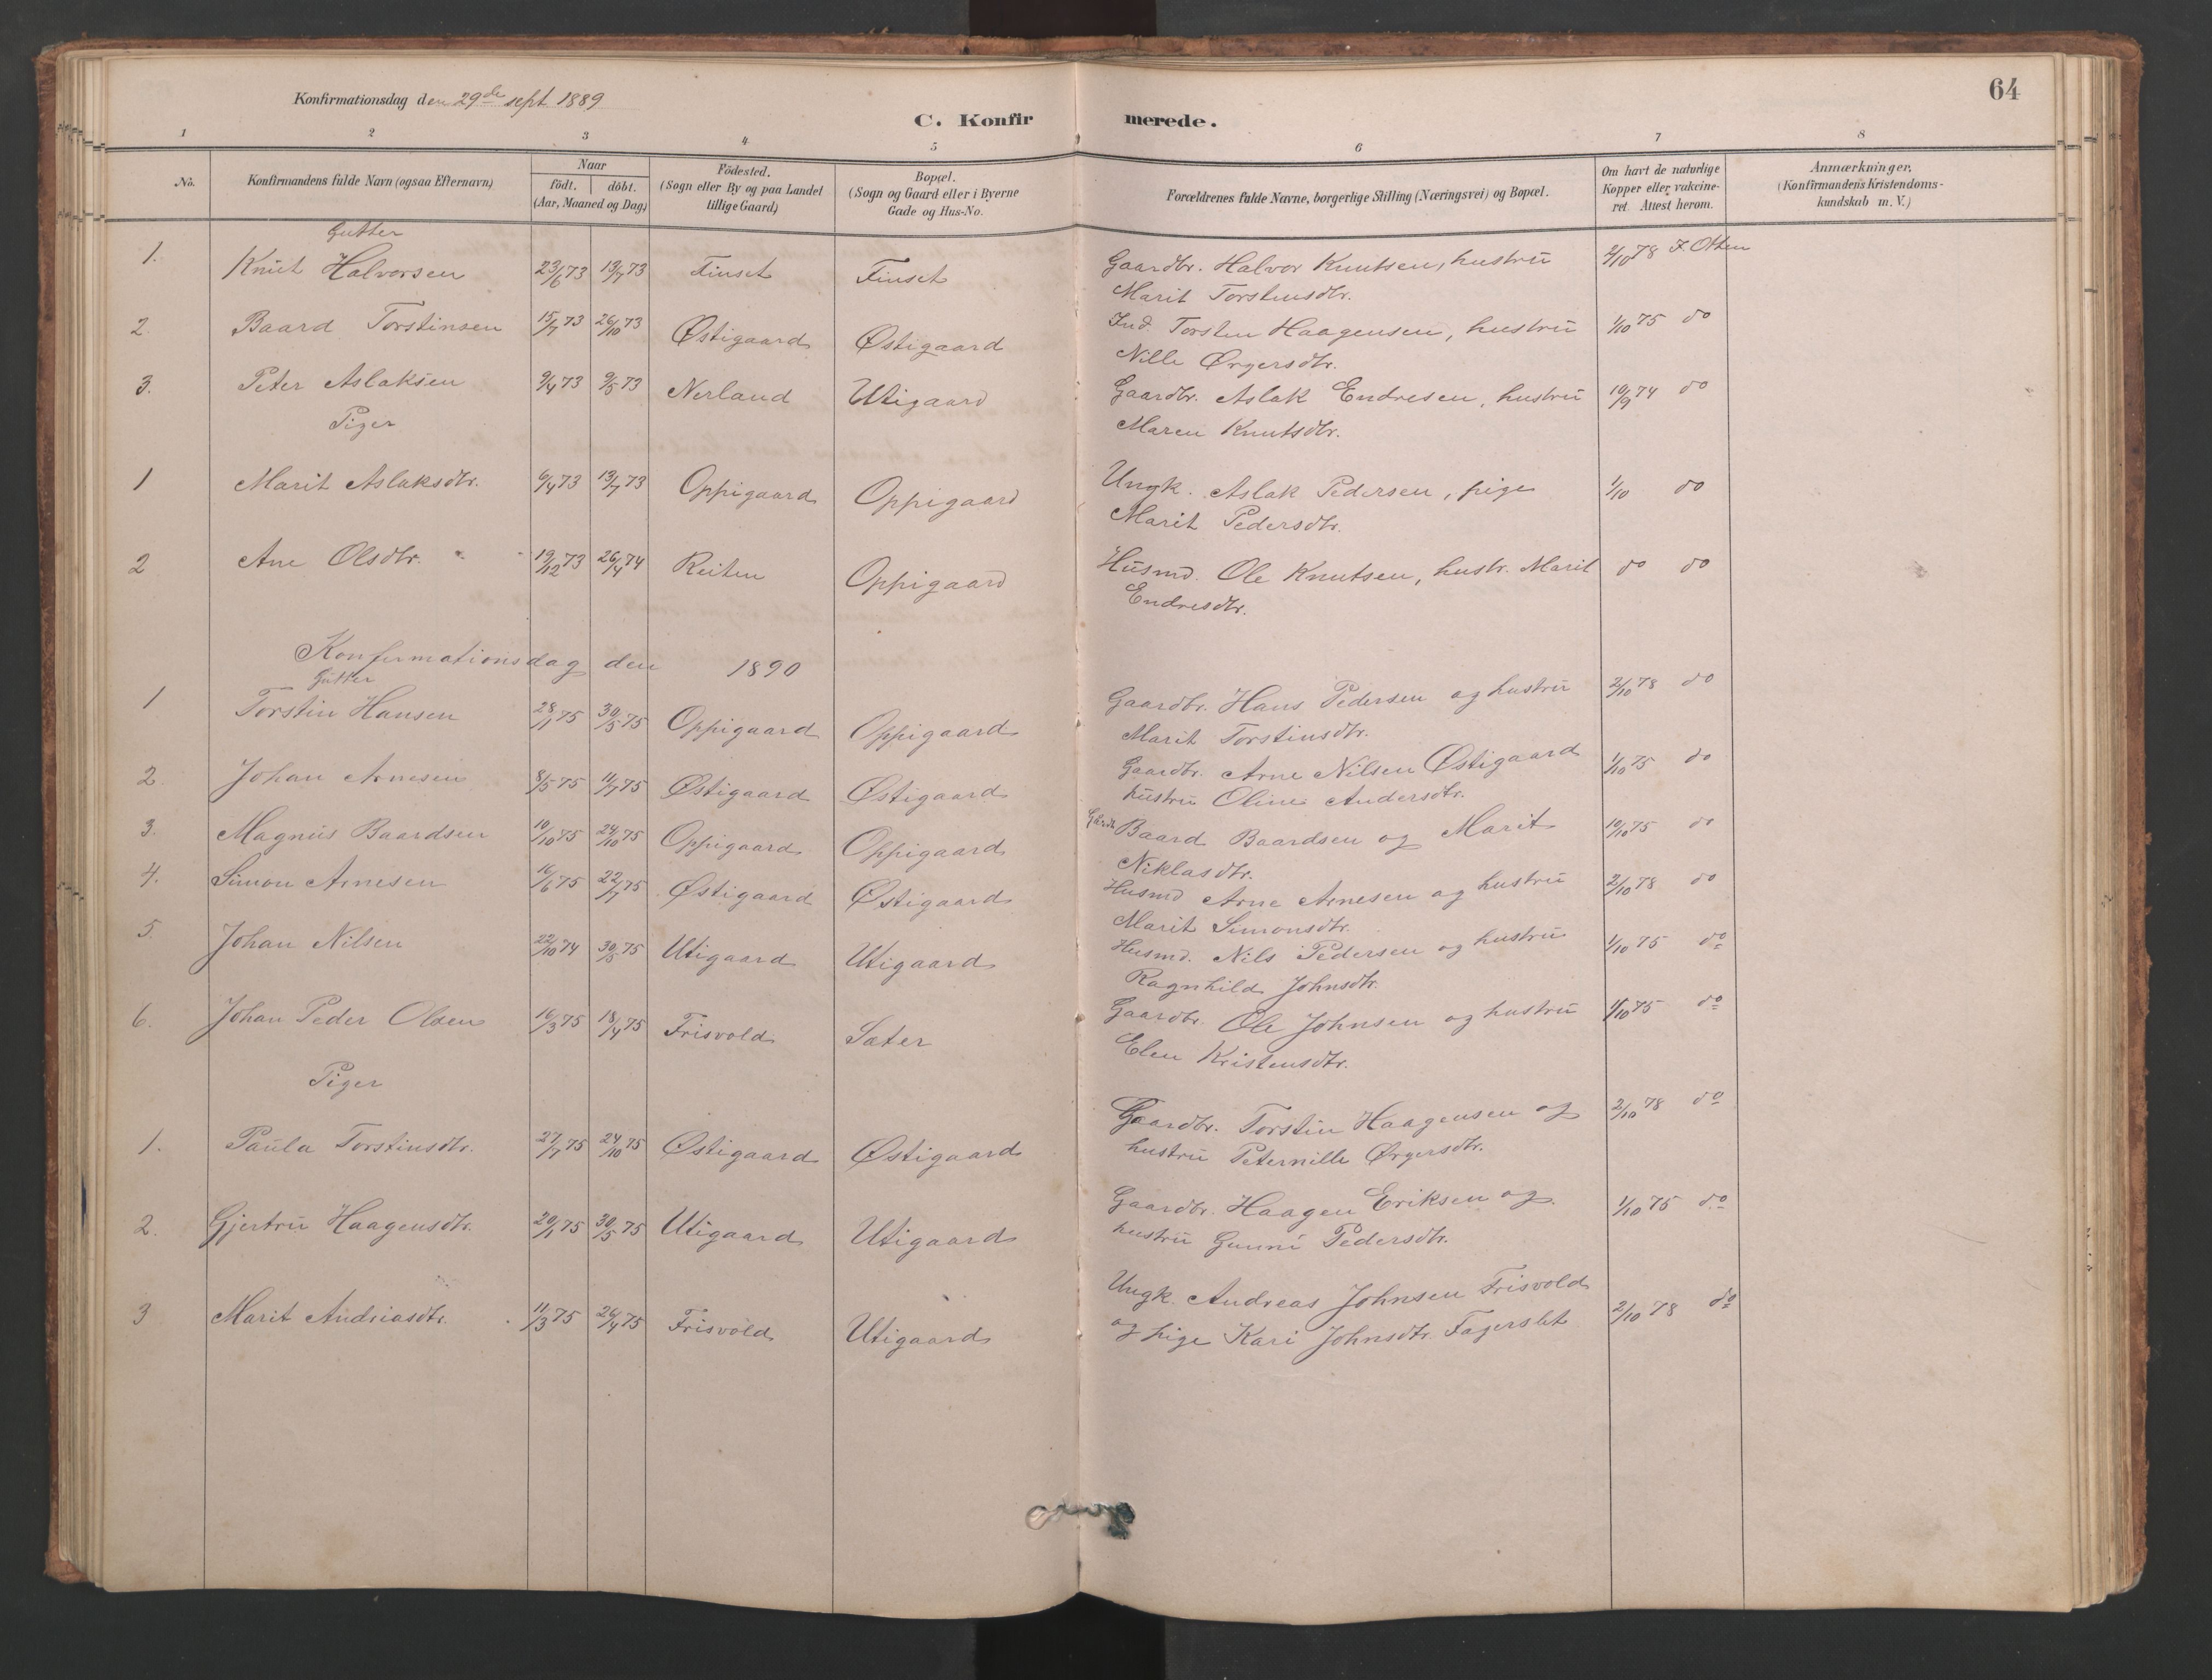 64
Konfirmationsdag den 29de sept 1889
C. Konfirmerede.
1 2 3 4 5 6 7 8
No. Konfirmandens fulde Navn (ogsaa Efternavn) Naar födt. döbt. (Aar, Maaned og Dag) Födested. (Sogn eller By og paa Landet tillige Gaard) Bopæl. (Sogn og Gaard eller i Byerne Gade og Hus-No. Forældrenes fulde Navne, borgerlige Stilling (Næringsvei) og Bopæl. Om havt de naturlige Kopper eller vakcineret. Attest herom. Anmærkninger, (Konfirmandens Kristendomskundskab m. V.)
Gutter
1. Knut Halvorsen 23/6 73 13/7 73 Finset Finset Gaardbr. Halvor Knutsen, hustru 2/10 78 F. Otten
Marit Torstensdtr.
2. Baard Torstinsen 15/7 73 26/10 73 Østigaard Østigaard Ind. Torsten Haagensen, hustru 1/10 75 do
Nille Ørgersdtr.
3. Peter Aslaksen 9/4 73 9/5 73 Nerland Utigaard Gaardbr. Aslak Endresen, hustru 10/9 74 do
Maren Knutsdtr.
Piger
1 Marit Aslaksdtr. 6/4 73 13/7 73 Oppigaard Oppigaard Ungk. Aslak Pedersen, pige 1/10 do
Marit Pedersdtr.
2 Ane Olsdtr. 19/12 73 26/4 74 Reiten Oppigaard Husmd. Ole Knutsen, hustr. Marit do do
Endresdtr.
Konfirmationsdag den 1890
Gutter
1 Torstin Hansen 28/1 75 30/5 75 Oppigaard Oppigaard Gaardbr. Hans Pedersen og hustru 2/10 78 do
Marit Torstinsdtr.
2. Johan Arnesen 8/5 75 11/7 75 Østigaard Østigaard Gaardbr. Arne Nilsen Østigaard 1/10 75 do
hustru Oline Andersdtr.
3. Magnus Baardsen 10/10 75 24/10 75 Oppigaard Oppigaard Gaardb. Baard Baardsen og Marit 10/10 75 do
Niklasdtr.
4. Simon Arnesen 16/6 75 22/7 75 Østigaard Østigaard Husmd Arne Arnesen og hustru 2/10 78 do
Marit Simonsdtr.
5. Johan Nilsen 22/10 74 30/5 75 Utigaard Utigaard Husmd. Nils Pedersen og hustru 1/10 75 do
Ragnhild Johnsdtr.
6. Johan Peder Olsen 16/3 75 18/4 75 Frisvold Sæter Gaardbr. Ole Johnsen og hustru 1/10 75 do
Elen Kristensdtr.
Piger
1. Paula Torstinsdtr. 27/7 75 24/10 75 Østigaard Østigaard Gaardbr. Torstin Haagensen og 2/10 78 do
hustru Peternille Ørgersdtr.
2. Gjertru Haagensdtr. 20/1 75 30/5 75 Utigaard Utigaard Gaardbr. Haagen Eriksen og 1/10 75 do
hustru Gunni Pedersdtr.
3 Marit Andriasdtr. 11/3 75 26/4 75 Frisvold Utigaard Ungk. Andreas Johnsen Frisvold 2/10 78 do
og pige Kari Johnsdtr. Fagerslet